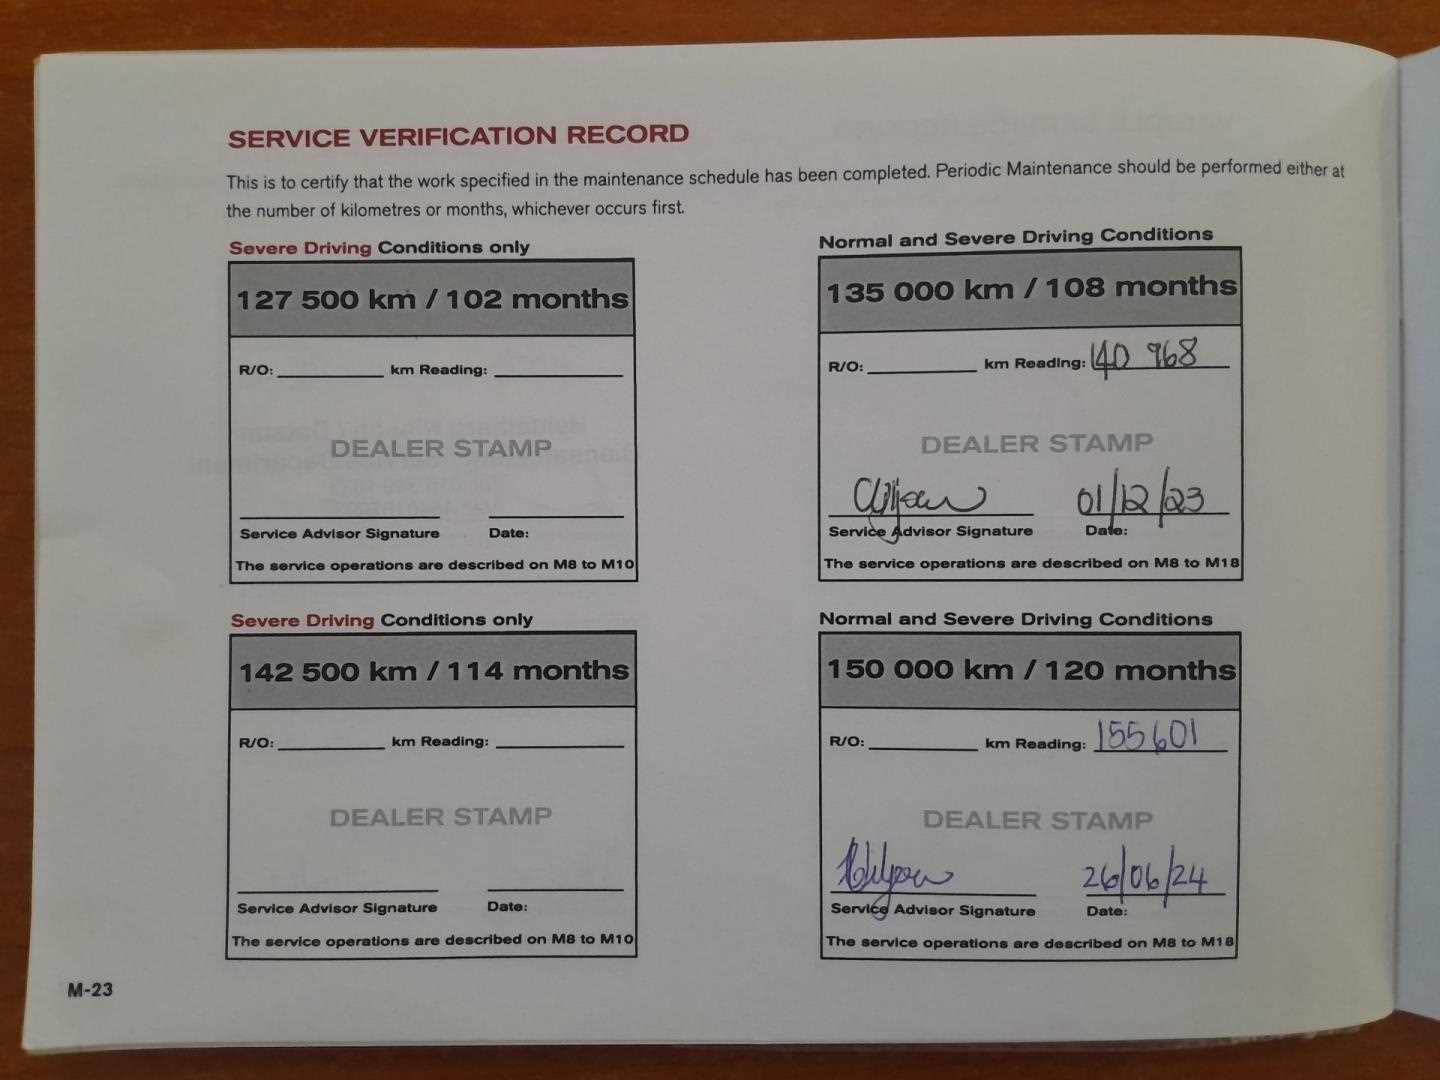 SERVICE VERIFICATION RECORD
This is to certify that the work specified in the maintenance schedule has been completed. Periodic Maintenance should be performed either at
the number of kilometres or months, whichever occurs first.
Severe Driving Conditions only
127 500 km / 102 months
R/O: km Reading:
DEALER STAMP
Service Advisor Signature Date:
The service operations are described on M8 to M10
Normal and Severe Driving Conditions
135 000 km / 108 months
R/O: km Reading: 140 968
DEALER STAMP
01/12/23
Service Advisor Signature Date:
The service operations are described on M8 to M18
Severe Driving Conditions only
142 500 km / 114 months
R/O: km Reading:
DEALER STAMP
Service Advisor Signature Date:
The service operations are described on M8 to M10
Normal and Severe Driving Conditions
150 000 km / 120 months
R/O: km Reading: 155601
DEALER STAMP
26/06/24
Service Advisor Signature Date:
The service operations are described on M8 to M18
M-23